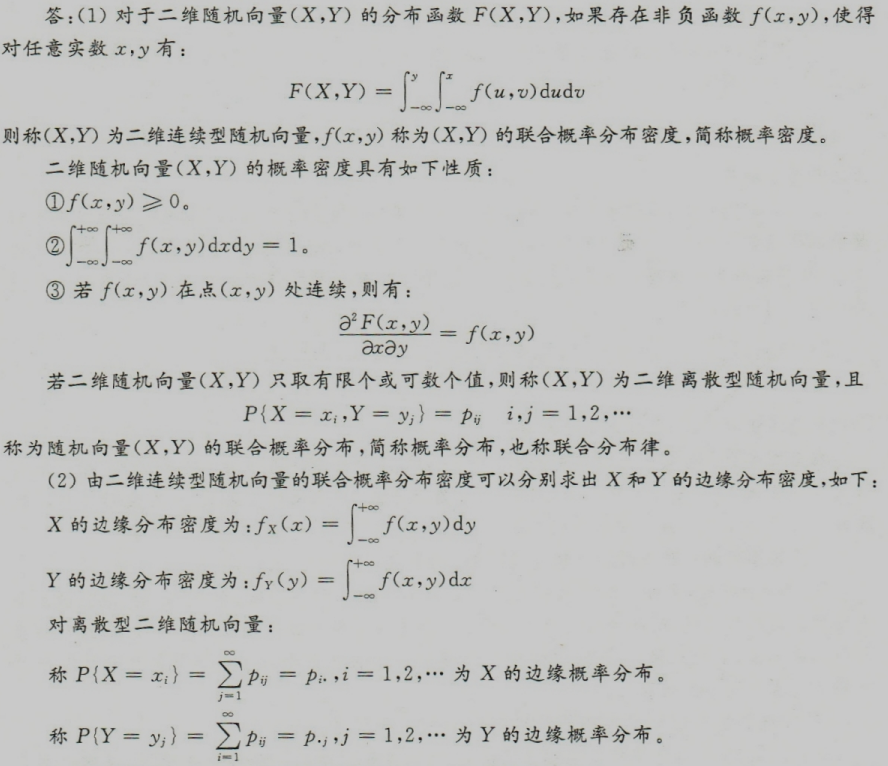 答:(1) 对于二维随机向量(X,Y) 的分布函数 F(X,Y),如果存在非负函数 f(x,y),使得
对任意实数 x,y 有:
F(X,Y) = ∫_{-∞}^{y}∫_{-∞}^{x} f(u,v)dudv
则称(X,Y) 为二维连续型随机向量,f(x,y) 称为(X,Y) 的联合概率分布密度,简称概率密度。
二维随机向量(X,Y) 的概率密度具有如下性质:
①f(x,y) ⩾ 0。
②∫_{-∞}^{+∞}∫_{-∞}^{+∞} f(x,y)dxdy = 1。
③ 若 f(x,y) 在点(x,y) 处连续,则有:
∂²F(x,y)/∂x∂y = f(x,y)
若二维随机向量(X,Y) 只取有限个或可数个值,则称(X,Y) 为二维离散型随机向量,且
P{X = x_i,Y = y_j} = p_{ij} i,j = 1,2,⋯
称为随机向量(X,Y) 的联合概率分布,简称概率分布,也称联合分布律。
(2) 由二维连续型随机向量的联合概率分布密度可以分别求出 X 和 Y 的边缘分布密度,如下:
X 的边缘分布密度为:f_X(x) = ∫_{-∞}^{+∞} f(x,y)dy
Y 的边缘分布密度为:f_Y(y) = ∫_{-∞}^{+∞} f(x,y)dx
对离散型二维随机向量:
称 P{X = x_i} = ∑_{j=1}^{∞} p_{ij} = p_{i·},i = 1,2,⋯ 为 X 的边缘概率分布。
称 P{Y = y_j} = ∑_{i=1}^{∞} p_{ij} = p_{·j},j = 1,2,⋯ 为 Y 的边缘概率分布。